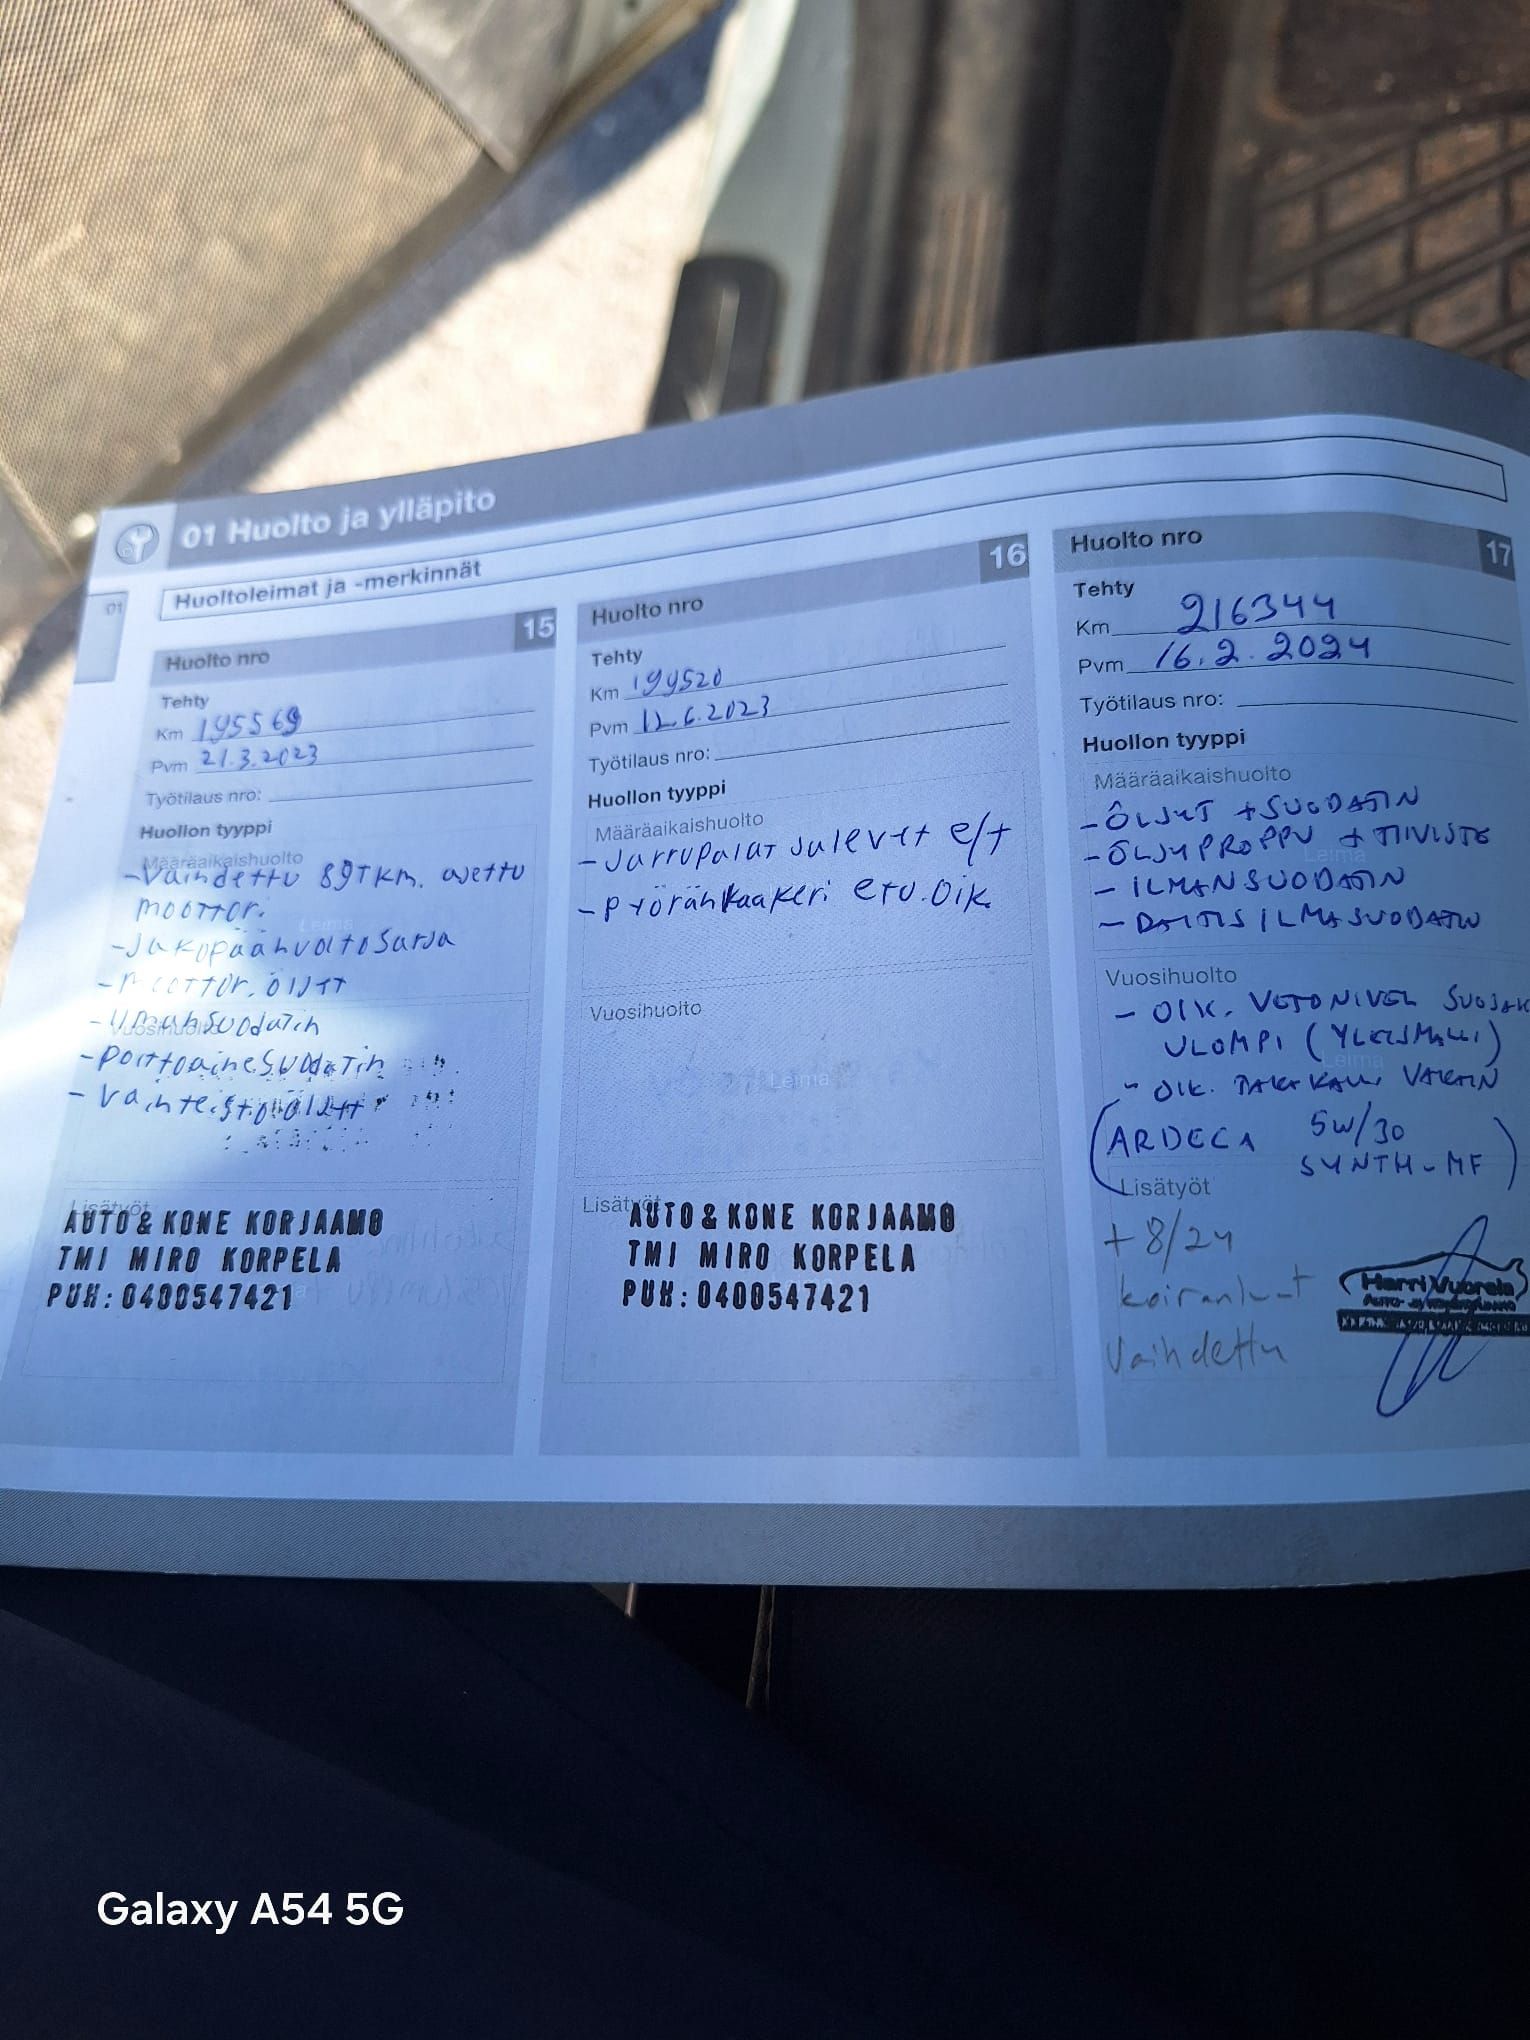 01 Huolto ja ylläpito
01
Huoltoleimat ja -merkinnät
Huolto nro 15
Tehty
Km 195569
Pvm 21.3.2023
Työtilaus nro:
Huollon tyyppi
Määräaikaishuolto
-Vaihdettu 89Tkm. ajettu
moottori.
-Jakopäähuoltosarja
-moottori. öljyt
Leima
-ilmansuodatin
Vuosihuolto
-polttoainesuodatin
-Vaihteistoöljyt
Lisätyöt
AUTO & KONE KORJAAMO
TMI MIRO KORPELA
PUH: 0400547421
Huolto nro 16
Tehty
Km 199520
Pvm 12.6.2023
Työtilaus nro:
Huollon tyyppi
Määräaikaishuolto
-Jarrupalat Ja levyt e/t
-Pyöränlaakeri etu.oik.
Vuosihuolto
Leima
Lisätyöt
AUTO & KONE KORJAAMO
TMI MIRO KORPELA
PUH: 0400547421
Huolto nro 17
Tehty
Km 216344
Pvm 16.2.2024
Työtilaus nro:
Huollon tyyppi
Määräaikaishuolto
-ÖLJYT + SUODATIN
-ÖLJYPROPPU + TIIVISTE
Leima
- ILMANSUODATIN
- RAITIS ILMASUODATIN
Vuosihuolto
- OIK. VETONIVEL SUOJAK
ULOMPI (YLEISMALLI)
Leima
- OIK. TAKA KALL. VAKAIN
(ARDECA 5W/30
SYNTH-MF)
Lisätyöt
+ 8/24
koiranluut
vaihdettu
Harri Vuorela
Galaxy A54 5G